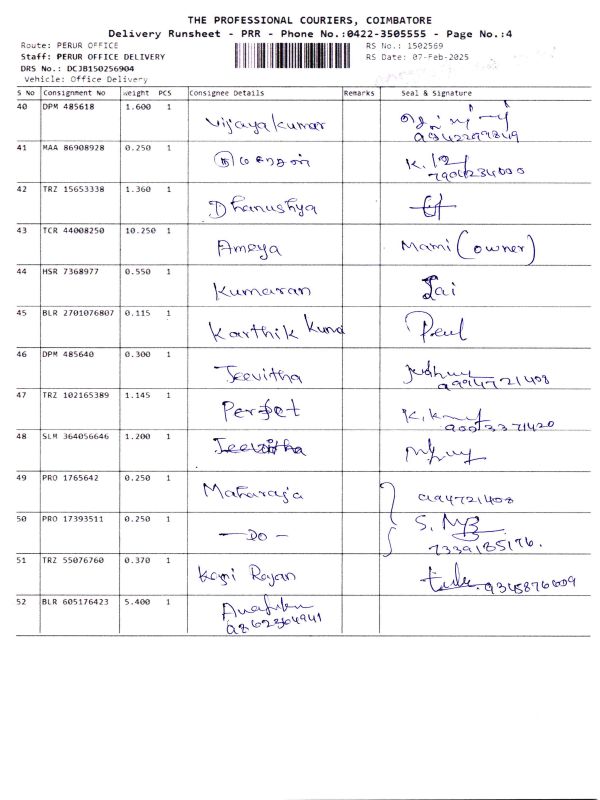 THE PROFESSIONAL COURIERS, COIMBATORE
Delivery Runsheet - PRR - Phone No.:0422-3505555 - Page No.:4
Route: PERUR OFFICE
RS No.: 1502569
Staff: PERUR OFFICE DELIVERY
RS Date: 07-Feb-2025
DRS No.: DCJB150256904
Vehicle: Office Delivery
S No Consignment No Weight PCS Consignee Details Remarks Seal & Signature
40 DPM 485618 1.600 1 Vijayakumar
9942299849
41 MAA 86908928 0.250 1
42 TRZ 15653338 1.360 1 Dhanushya
43 TCR 44008250 10.250 1 Ameya Mami (owner)
44 HSR 7368977 0.550 1 Kumaran Jai
45 BLR 2701076807 0.115 1 Karthik Paul
46 DPM 485640 0.300 1 Jeevitha
9994721408
47 TRZ 102165389 1.145 1 Perfect
9003371420
48 SLM 364056646 1.200 1 Jeevitha
49 PRO 1765642 0.250 1 Maharaja 994721408
50 PRO 17393511 0.250 1 - DO -
7339185176.
51 TRZ 55076760 0.370 1
52 BLR 605176423 5.400 1